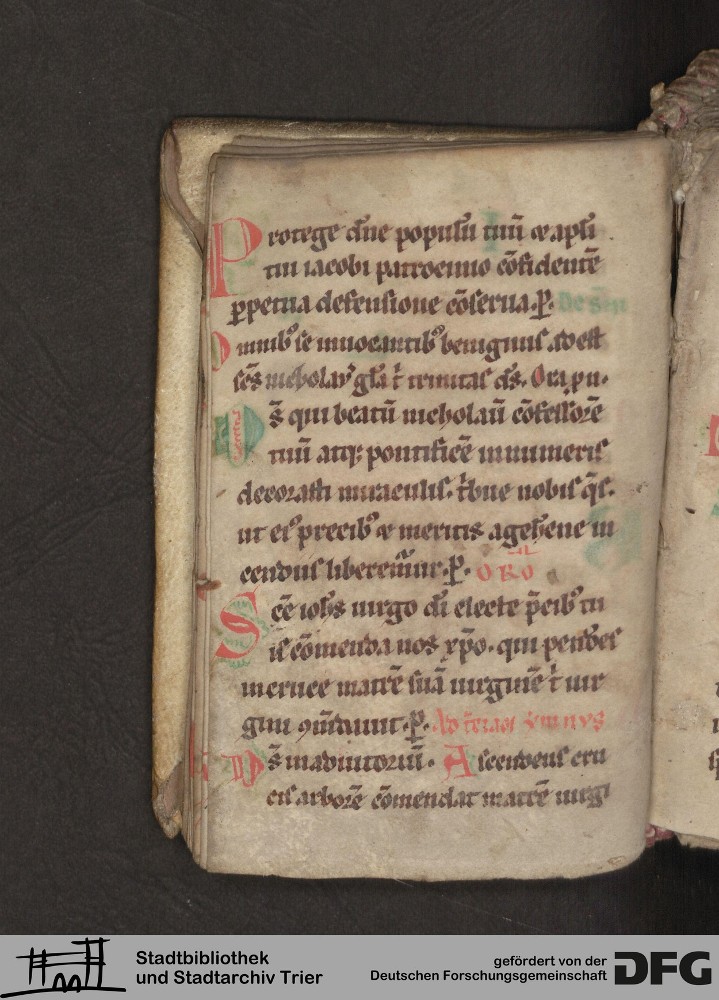 Protege dn̄e populū tuū ⁊ apłi
tui iacobi patrocinio cōfidentē
ꝑpetua defensione cōserua. ꝑ.
Omnibꝰ se inuocantibꝰ benignus adest
sc̄s nicholaꝰ
s̄ qui beatū nicholaū cōfessorē
tuū atqꝫ pontificē innumeris
decorasti miraculis. tͥbue nobis q̄s.
ut eiꝰ precibꝰ ⁊ meritis a gehene in
cendiis liberemur. ꝑ. ORO
Sc̄e ioh̄s uirgo dī electe p̄cibꝰ tu
is cōmenda nos xp̄o. qui pendens
in cruce matrē suā uirginē tͥ uir
gini ꝯmdauit. ꝑ.
Ds̄ in adiutoriū. Ascendens cru
cis arborē cōmendat matrē uirgi
Stadtbibliothek
und Stadtarchiv Trier
gefördert von der
Deutschen Forschungsgemeinschaft
DFG